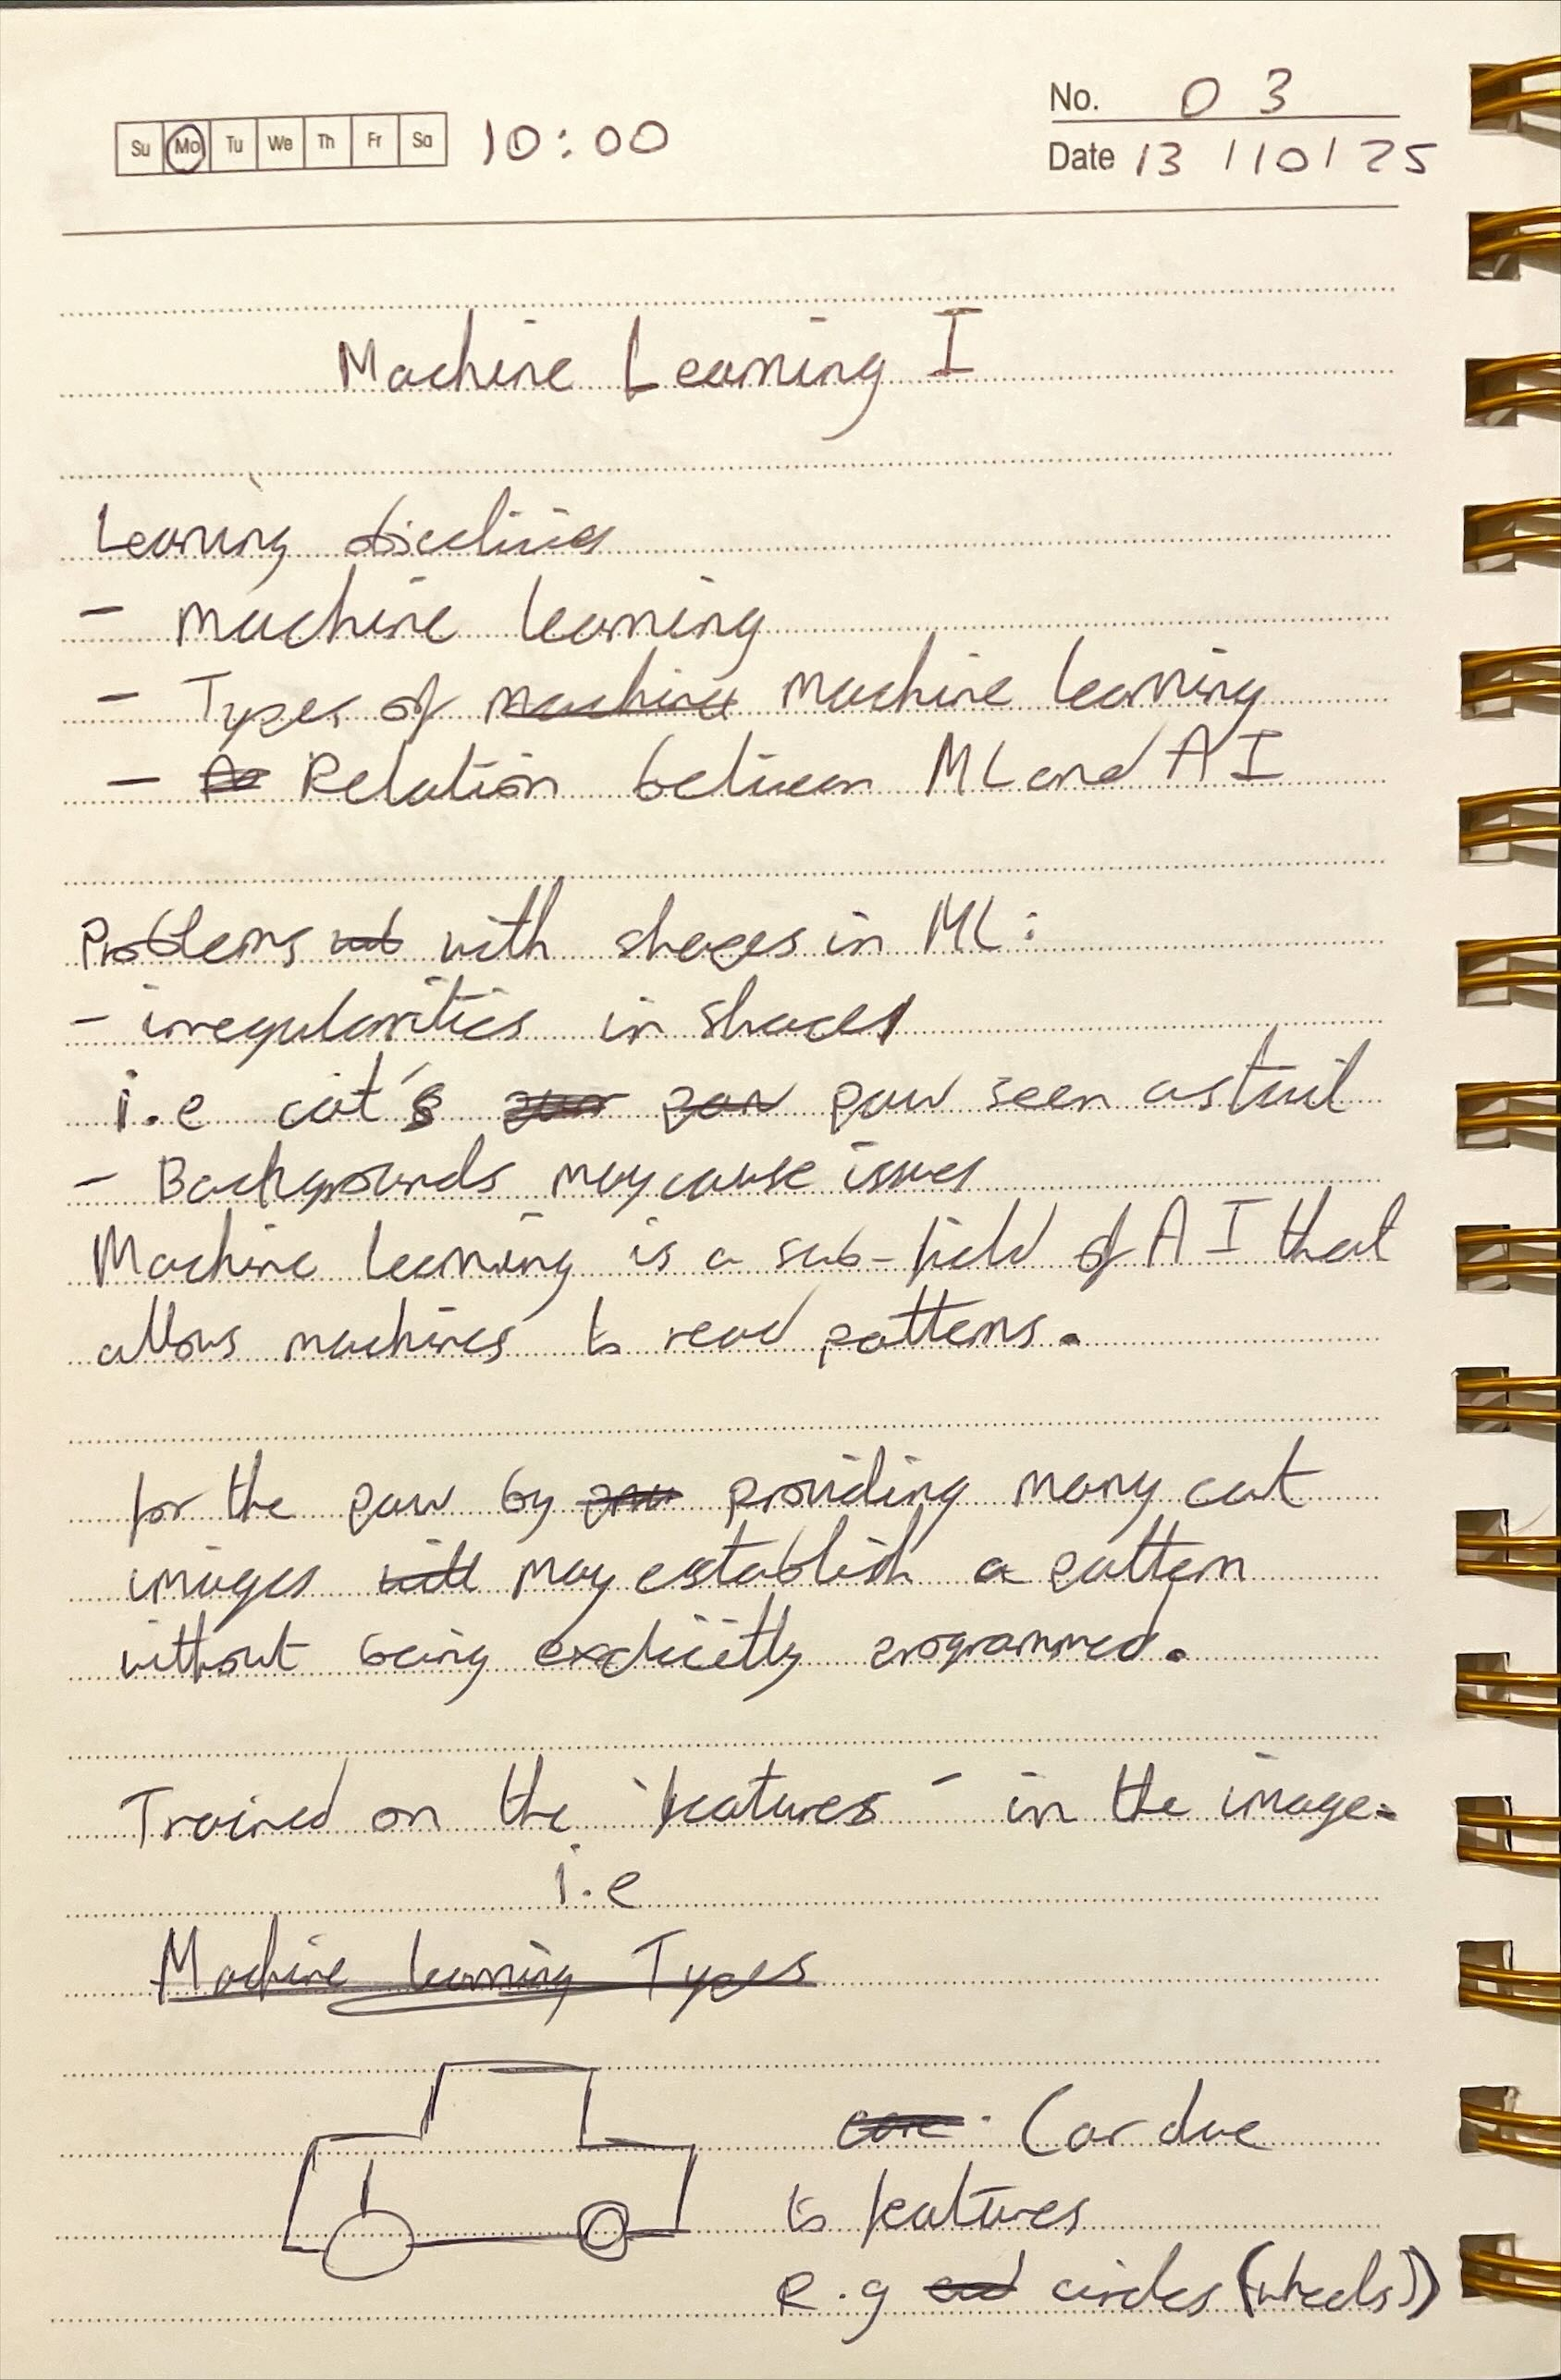 Su Mo Tu We Th Fr Sa 10:00
No. 03
Date 13/10/25
Machine Learning I
Learning objectives
- machine learning
- Types of machine machine learning
- Relation between ML and AI
Problems with shapes in ML:
- irregularities in shapes
i.e cat's paw seen as tail
- Backgrounds may cause issues
Machine learning is a sub-field of AI that
allows machines to read patterns.
for the paw by providing many cat
images will may establish a pattern
without being explicitly programmed.
Trained on the 'features' in the image.
i.e
Machine learning Types
Car due
to features
e.g circles (wheels)